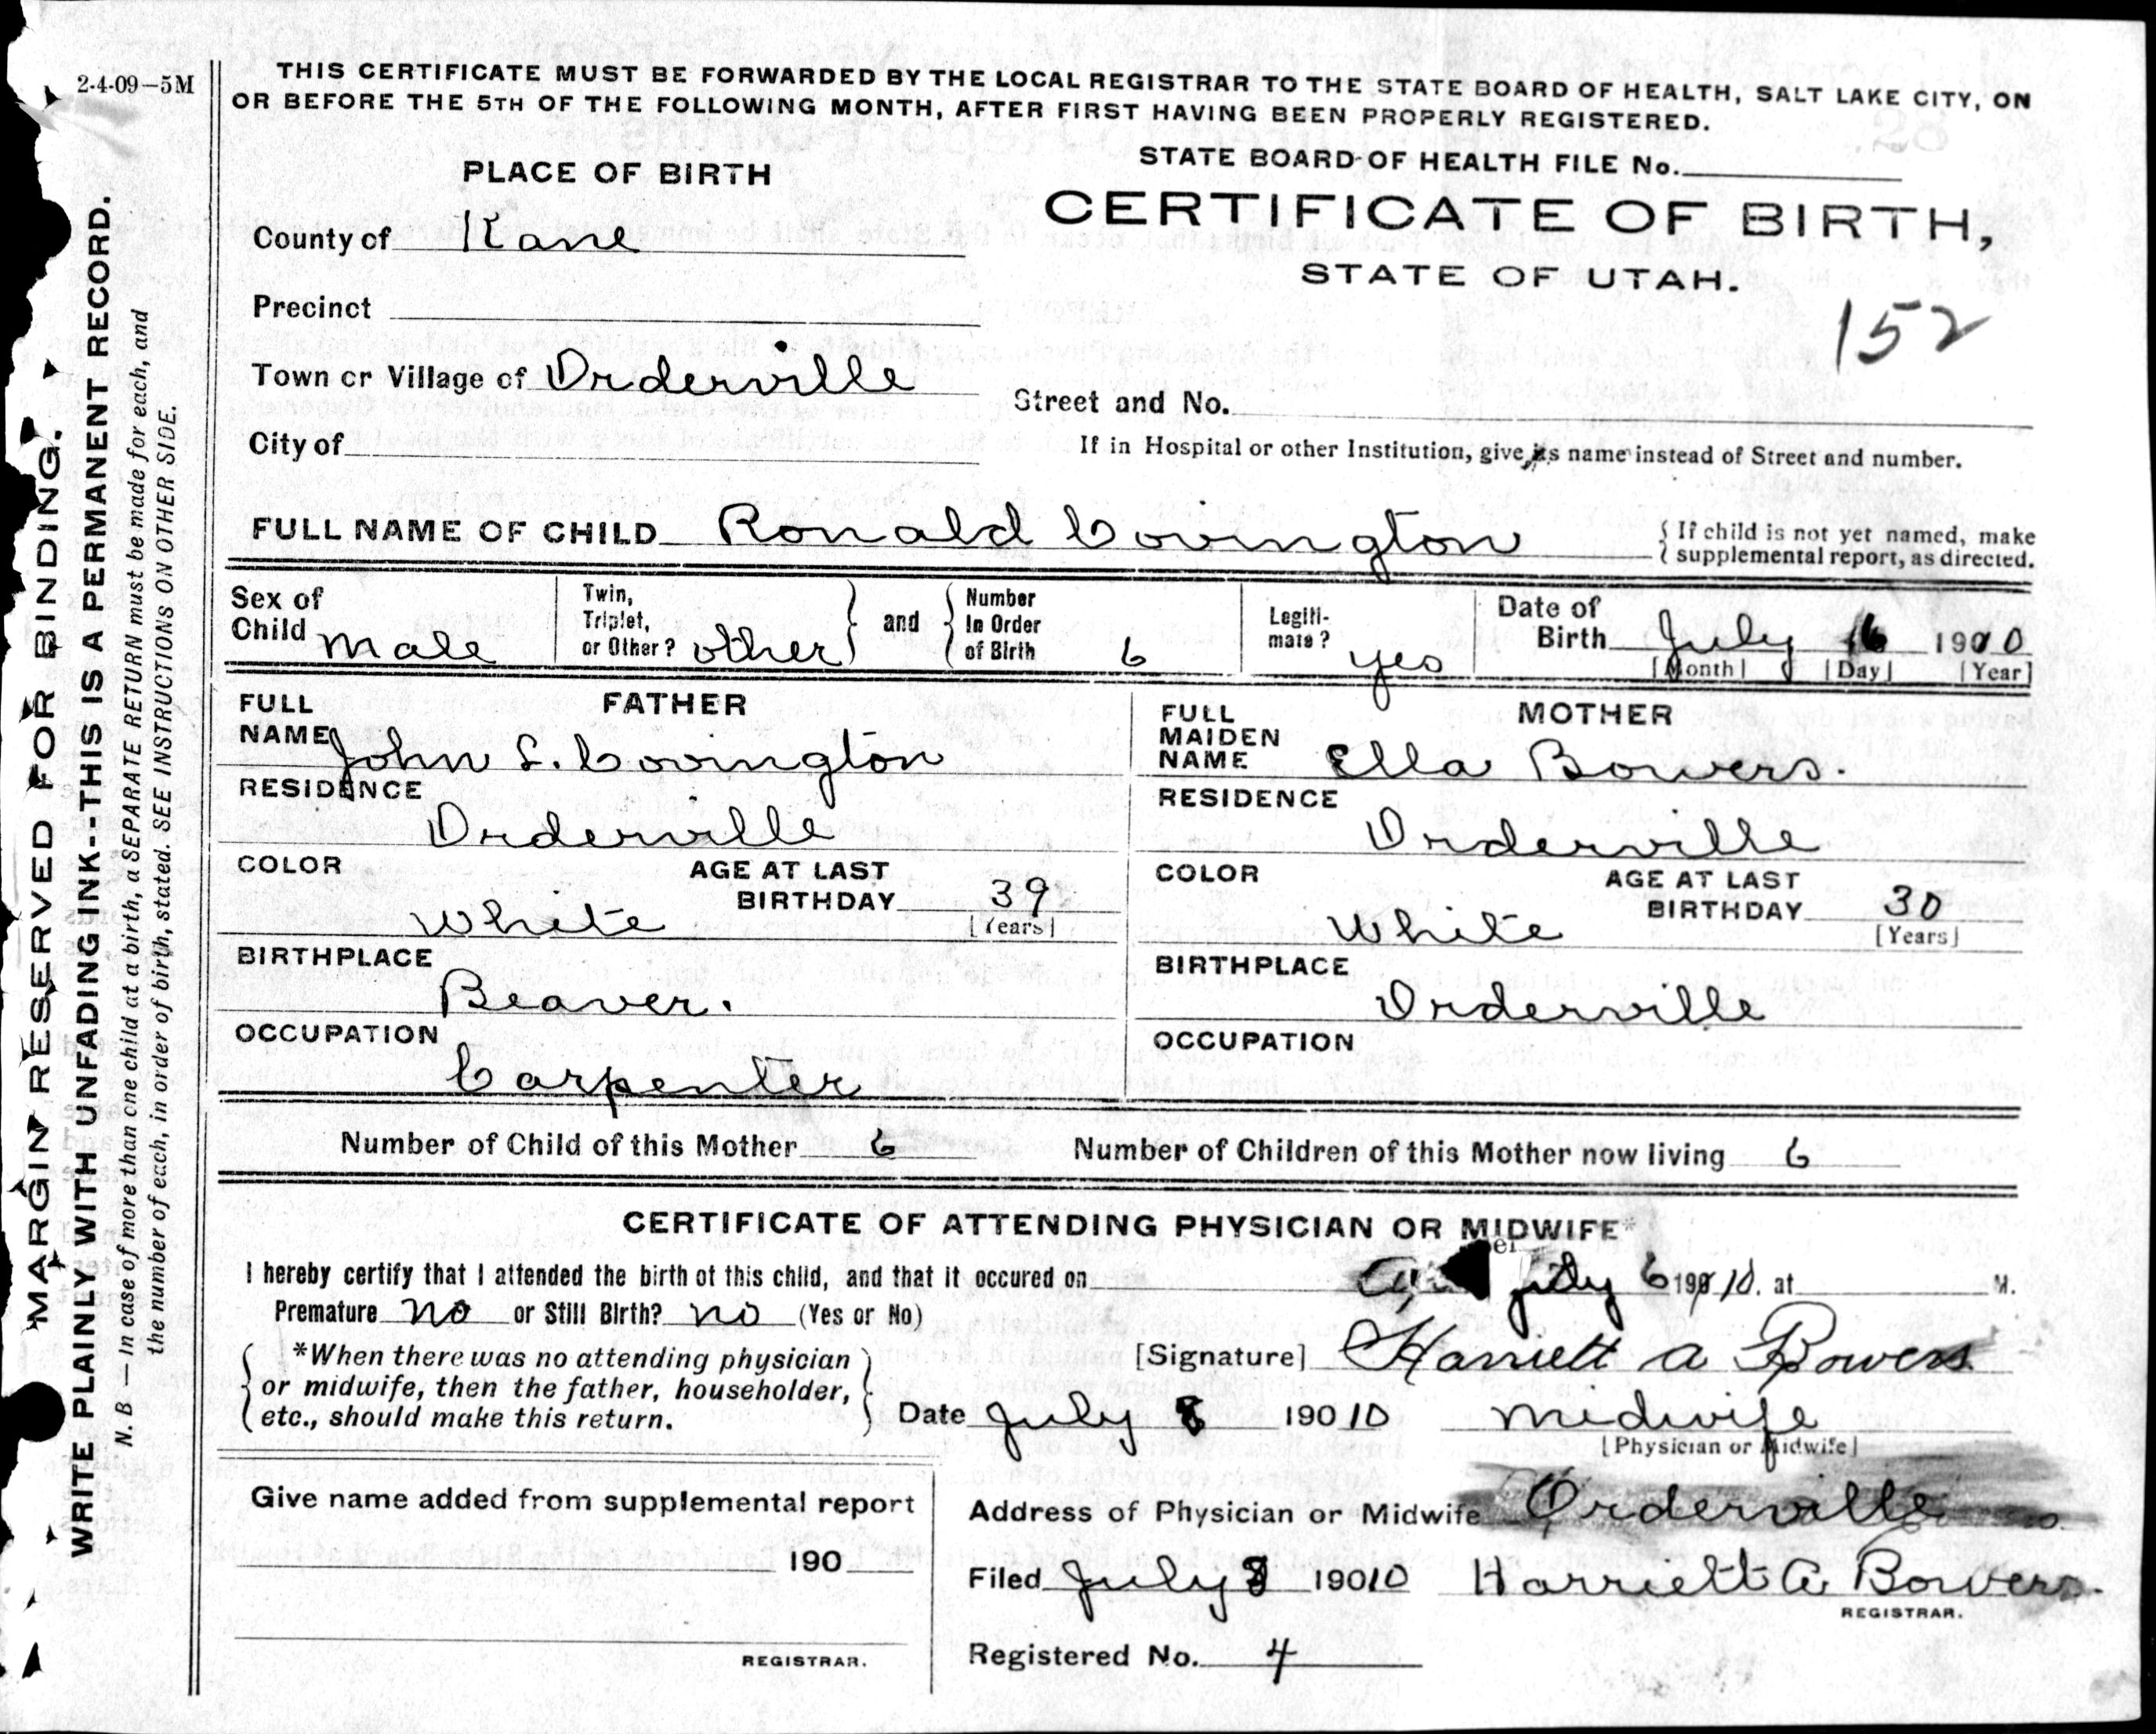 2-4-09-5M
THIS CERTIFICATE MUST BE FORWARDED BY THE LOCAL REGISTRAR TO THE STATE BOARD OF HEALTH, SALT LAKE CITY, ON
OR BEFORE THE 5TH OF THE FOLLOWING MONTH, AFTER FIRST HAVING BEEN PROPERLY REGISTERED.
MARGIN RESERVED FOR BINDING.
WRITE PLAINLY WITH UNFADING INK--THIS IS A PERMANENT RECORD.
N. B — In case of more than one child at a birth, a SEPARATE RETURN must be made for each, and
the number of each, in order of birth, stated. SEE INSTRUCTIONS ON OTHER SIDE.
STATE BOARD OF HEALTH FILE No.
PLACE OF BIRTH
CERTIFICATE OF BIRTH,
STATE OF UTAH.
152
County of Kane
Precinct
Town or Village of Orderville
Street and No.
City of
If in Hospital or other Institution, give its name instead of Street and number.
FULL NAME OF CHILD Ronald Covington
{ If child is not yet named, make
supplemental report, as directed.
Sex of
Child male
Twin,
Triplet,
or Other? other
and
Number
In Order
of Birth 6
Legiti-
mate? yes
Date of
Birth July 6 1910
[Month] [Day] [Year]
FATHER
FULL
NAME John L. Covington
RESIDENCE
Orderville
COLOR
White
AGE AT LAST
BIRTHDAY 39
[Years]
BIRTHPLACE
Beaver.
OCCUPATION
Carpenter
MOTHER
FULL
MAIDEN
NAME Ella Bowers.
RESIDENCE
Orderville
COLOR
White
AGE AT LAST
BIRTHDAY 30
[Years]
BIRTHPLACE
Orderville
OCCUPATION
Number of Child of this Mother 6 Number of Children of this Mother now living 6
CERTIFICATE OF ATTENDING PHYSICIAN OR MIDWIFE*
I hereby certify that I attended the birth of this child, and that it occured on July 6 1910. at M.
Premature no or Still Birth? no (Yes or No)
*When there was no attending physician
or midwife, then the father, householder,
etc., should make this return.
[Signature] Harriett A Bowers
Date July 8 190 10 midwife
[Physician or Midwife]
Give name added from supplemental report
190
REGISTRAR.
Address of Physician or Midwife Orderville
Filed July 8 19010 Harriett A. Bowers.
REGISTRAR.
Registered No. 4